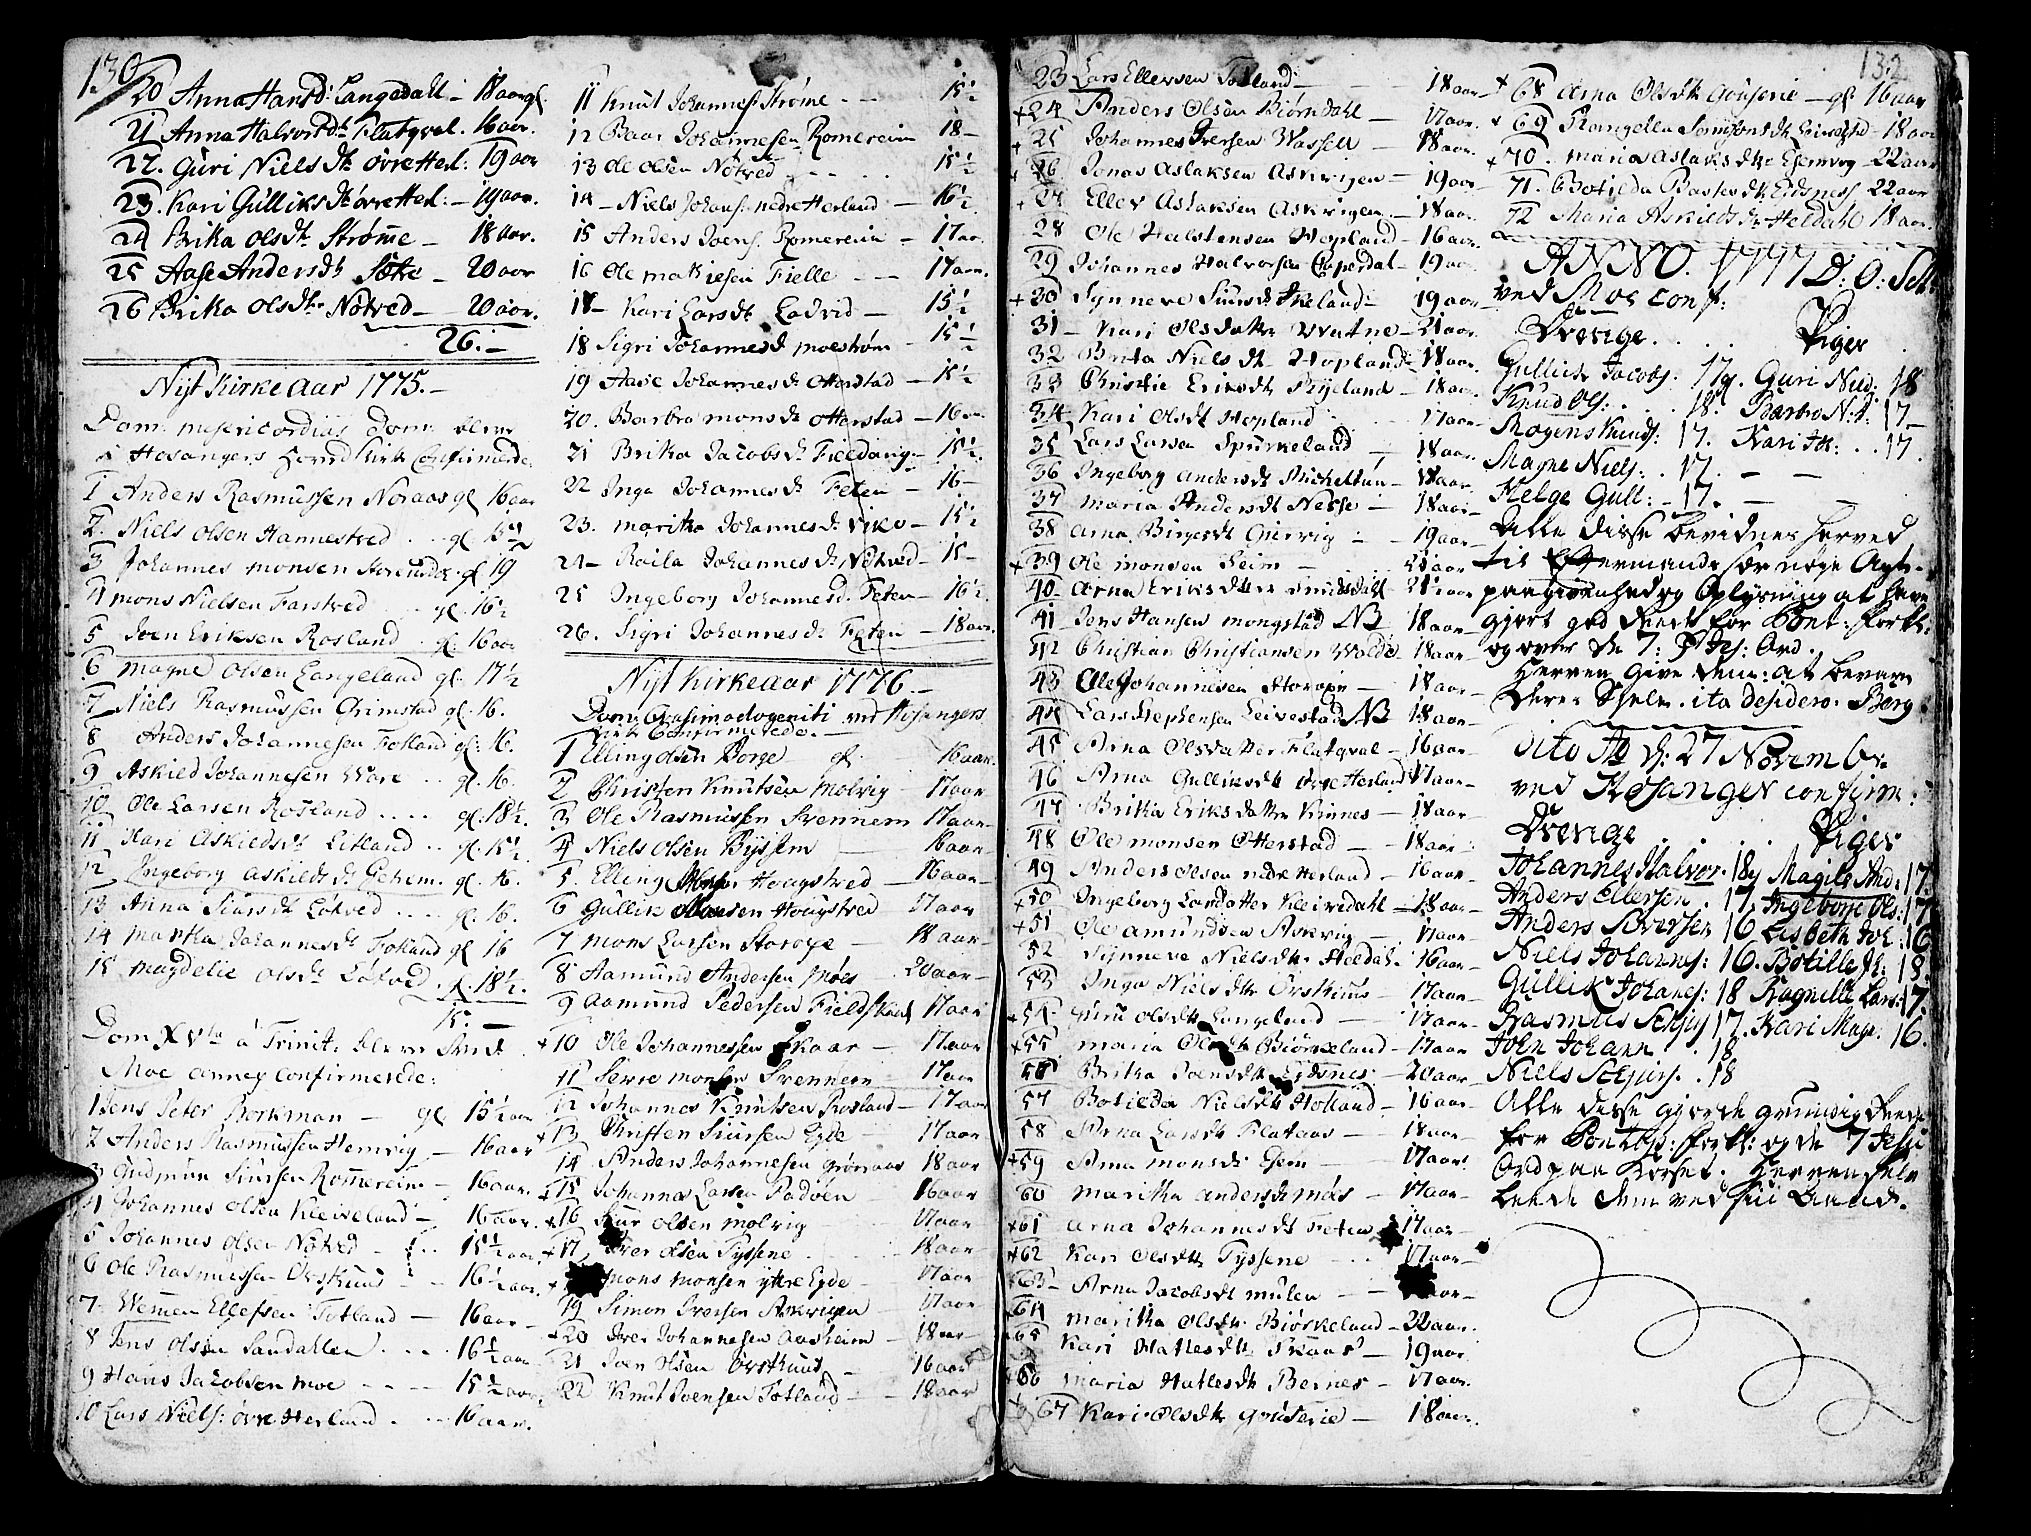 130
20 Anna Hansd: Langedahl — 18 aar gl.
21 Anna Halvorsdtr Flatqval. 16 aar.
22. Guri Nielsdtr øvre Herl: 19 aar
23. Kari Gulliksdtr øvre Herl: — 19 aar.
24 Brita Olsdtr Strøme — 18 aar.
25 Aase Andersdtr Sæte — 20 aar
26 Brika Olsdtr Nötved — 20 aar.
26. —
Nyt Kirke Aar 1775. —
Dom: misericordias Dom:
i Hosangers Hoved Kirk Confirmerede:
1 Anders Rasmussen Noraas gl 16 aar
2. Niels Olsen Hannestved . . gl. 15 1/2
3 Johannes Monsen . gl 19
4 Mons Nielsen Farstved . . . gl. 16 1/2
5 Joen Eriksen Rosland . gl. 16 aar
6 Magne Olsen Langeland gl. 17 1/2
7 Niels Rasmussen Grimstad gl. 16.
8 Anders Johannesen Fotland gl. 16.
9 Askild Johannesen Ware . . gl. 16.
10. Ole Larsen Rosland . . . . gl. 18 1/2.
11 Kari Askieldsdtr Litland . . gl. 15 1/2.
12 Ingeborg Askildsdtr Gehem. gl. 16.
13 Anna Siursdtr Lötved . . . . gl. 16.
14 Martha Johannesdtr Fotland gl 16
15 Magdelie Olsdtr Lötved. gl. 18 1/2.
15. —
Dom XVta a Trinit:
Moe annex Confirmerede:
1 Jens Peter Borkman — gl 15 1/2 aar
2 Anders Rasmussen Hemvig — 16 aar
3 Gudmun Siursen Romereim — 16 aar.
4 Johannes Olsen Kleiveland — 16 aar.
5 Johannes Olsen Nötved — . . 15 1/2 aar.
6 Ole Rasmussen Ørskuus — 16 1/2 aar.
7. Wemen Ellefsen Totland — 16 aar —
8 Jens Olsen Sandahlen . . . . 16 1/2 aar
9 Hans Jacobsen Moe — — — 15 1/2 aar
10 Lars Niels: øvre Herland . . . 16 aar.
11 Knut Johannes: Strøme . — — 15 1/2
12 Baar Johannesen Romereim 18 —
13 Ole Olsen Nötved — — . . . 15 1/2
14 — Niels Johans: nedre Herland — 16 1/2
15 Anders Joens: Romereim — 17 aar.
16 Ole Mathiesen Fielle — — 17 aar.
17 — Kari Larsdtr Ladvid — 15 1/2
18 Sigri Johannesd: Moestrøm — 15 1/2
19 Aase Johannesdr Otterstad — 15 1/2
20. Barbra Monsdtr Otterstad — 16
21 Brika Jacobsdr Fieldang — 15 1/2.
22 Inga Johannesdr Feten — 16 —
23. Maritha Johannesdr Vike — 15 1/2
24 — Raila Johannesdr Nötved — 15 —
25 Ingeborg Johannesd. Feten — 16 1/2
26. Sigri Johannesdr Feten — 18 aar.
Nyt Kirke Aar 1776. —
Dom: Qvasimodogeniti ved Hosangers
Kirk Confirmerede. —
1 Elling Olsen Borge gl. 16 aar.
2 Christen Knutsen Molvig — 17 aar
3 Ole Rasmussen Svennem 17 aar —
4 Niels Olsen Byssem — 16 aar —
5. Elling Hougstved — 16 aar —
6 Gullik Hougstved — 17 aar
7 Mons Larsen Storøye — 18 aar —
8 Aamund Andersen Moes . 20 aar —
9 Aamund Pedersen Fieldskaal 17 aar
+ 10 Ole Johannessen Skaar — 17 aar
11 Sewe Monsen Svennem — 17 aar
12 Johannes Knutsen Rosland — 17 aar
+ 13 Christen Siursen Eyde — 17 aar
14 Anders Johannesen Grønaas 18 aar
+ 15 Johannes Larsen Padöen — 16 aar
+ 16 Siur Olsen Molvig — 17 aar
+ 17 Iver Olsen Tyssene . . . 18 aar
+ Mons Monsen yttre Eyde — 17 aar
19 Simon Iversen Askvigen — 17 aar
+ 20 Iver Johannesen Aasheim — 18 aar —
21 Iver Olsen Ørskuus — 16 aar
22 Knut Ivensen Totland — 18 aar
132
23 Lars Ellevsen Totland — 18 aar —
+ 24 Anders Olsen Biørndahl — 17 aar.
+ 25 Johannes Iversen Wassell — 18 aar.
+ 26 Jonas Aslaksen Askvigen — 19 aar —
+ 27 Ellev Aslaksen Askvigen. — 18 aar.
28 Ole Halstensen Hopland — 16 aar.
29 Johannes Halvorsen — 19 aar
+ 30 Synneve Siursdtr Ikeland — 19 aar
31 — Kari Olsdatter Wratne — 21 aar
32 Brita Nielsdtr Hopland — 18 aar.
33 Christie Eriksdtr Ryeland — 18 aar.
34 Kari Olsdtr Hopland . . . 17 aar —
35 Lars Larsen Spurkeland — 18 aar.
36 Ingeborg Andersdtr Mickeltun — 18 aar
37 Maria Andersdtr Nesse — 18 aar —
38 Arna Birgesdtr — 19 aar —
+ 39 Ole Monsen Seim — . . . 21 aar
40 Arna Eriksdtter 21 aar
41 Jens Hansen Mongstad NB 18 aar —
42 Christian Christiansen Wolde — 18 aar —
43 Ole Johannesen Storøye — 18 aar —
44 Lars Stephensen Leivestad NB 18 aar —
45 Arna Olsdatter Flatqval — 16 aar —
46 Arna Gulliksdtr övre Herland 17 aar —
47 Britha Eriksdatter Kinnes — 18 aar —
48 Ole Monsen Otterstad — 18 aar —
49 Anders Olsen nedre Herland — 16 aar —
+ 50 Ingeborg Larsdatter Kleivedahl — 18 aar —
+ 51 Ole Amundsen Askvig — 17 aar —
52 Synneve Nielsdtr Heldal — 16 aar —
53 Inga Nielsdtr Ørskuus — 17 aar —
+ 54 Guri Olsdtr Langeland — 17 aar —
+ 55 Maria Olsdtr Biørkeland — 17 aar
56 Britha Joensdtr Eydsnes — 20 aar —
57 Botilda Nielsdtr Hotland — 16 aar —
58 Arna Larsdtr Flataas — 18 aar —
+ 59 Anna Monsdtr Esem — 17 aar.
60 Maritha Andersdtr Moes — 17 aar —
+ 61 Arna Johannesdtr Feten 17 aar —
+ 62 Kari Olsdtr Tyssene . . . 17 aar —
+ 63 — Arna Jacobsdtr Mulen — — aar —
+ 64 Maritha Olsdtr Biørkeland — 22 aar.
+ 65 Kari Hatlesdtr Skaar — 19 aar
+ 66 Maria Hatlesdtr Bernes — 17 aar.
67 Kari Olsdtr — 18 aar.
+ 68 Arna Olsdtr — gl. 16 aar
+ 69 Rangella 18 aar
+ 70. Maria Aslaksdtr Esemvog — 22 aar
71. Botilda Eidsness 22 aar
72 Maria Askildsdtr Heldahl 18 aar.
ANNO. 1777 D: 8: Sebt
ved Moe conf:
Drenge. . . . . Piger
Gullick Jacobs: 17 g. Guri Niels: 18
Knud Ols: . . . . 18. Barbro N:d: 17 —
Mogens Knuds: 17. Kari Jtr: . . 17.
Magne Niels: . 17. — —
Helge Gull: — 17. — —
Alle disse bevidnes herved
til nøye Agt-
paagivenhed og Oplysning at have
giort god Rede for Pont: Forkl:
og over de 7: P Jes: Ord.
Herren give dem: at bevare
deres Siele. ita desidero: Borg
Dito Ao d: 27 Novembr
ved Hosanger confirm:
Drenge . . . Piger
Johannes Halvor: 18 g Magile And: 17.
Anders Ellersen . 17. Ingeborg Ols: 17
Anders Siversen 16 Lisbeth Joh: 16
Niels Johanes: 16. Botille Jt: 18.
Gullik Johanes: 18 Ragnille Lars: 17
Rasmus 17. Kari Mage. 16.
John Johann . 18
Niels . 18
Alle disse giorde grundig Rede
for Pontop: Forkl: og de 7 Jesu
Ord paa Korset. Herren selv
lede dem ved sin Aand.